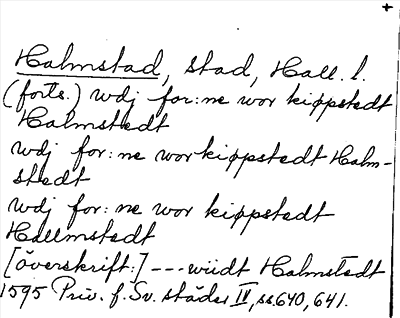 Halmstad, stad, Hall. l.
(forts.) wdj for:ne wor kiøpstedt
Halmstedt
wdj for:ne wor kiøpstedt Halm-
stedt
wdj for:ne wor kiøpstedt
Hallmstedt
[överskrift:] --- wiidt Halmstedt
1595 Priv. f. Sv. städer IV, ss. 640, 641.